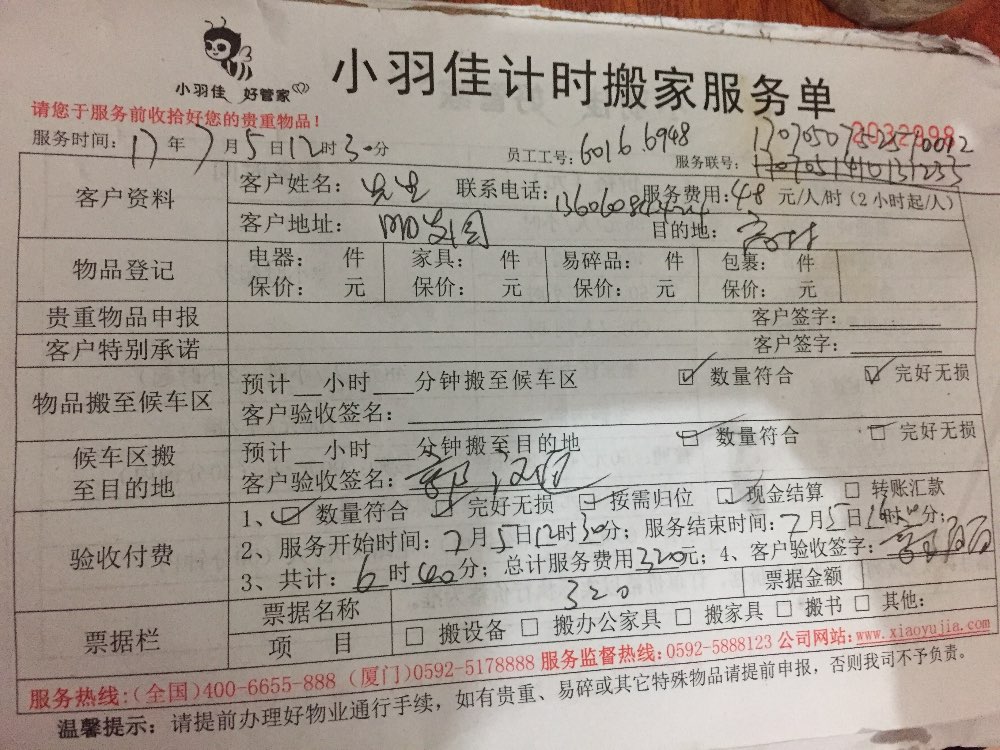 小羽佳 好管家
小羽佳计时搬家服务单
请您于服务前收拾好您的贵重物品！
服务时间：17年7月5日12时30分 员工工号：6016.6948 服务联号：
客户资料 客户姓名：先生 联系电话： 服务费用：48元/人/时（2小时起/人）
客户地址： 目的地：
物品登记 电器： 件 家具： 件 易碎品： 件 包裹： 件
保价： 元 保价： 元 保价： 元 保价： 元
贵重物品申报 客户签字：
客户特别承诺 客户签字：
物品搬至候车区 预计__小时___分钟搬至候车区 ☑ 数量符合 ☑ 完好无损
客户验收签名：
候车区搬至目的地 预计__小时___分钟搬至目的地 ☑ 数量符合 ☑ 完好无损
客户验收签名：
验收付费 1、☑ 数量符合 ☑ 完好无损 ☑ 按需归位 ☑ 现金结算 □ 转账汇款
2、服务开始时间：7月5日12时30分；服务结束时间：7月5日16时 分；
3、共计：6时40分；总计服务费用320元；4、客户验收签字：
票据栏 票据名称 320 票据金额
项 目 □ 搬设备 □ 搬办公家具 □ 搬家具 □ 搬书 □ 其他：
服务热线：（全国）400-6655-888（厦门）0592-5178888 服务监督热线：0592-5888123 公司网站：www.xiaoyujia.com
温馨提示：请提前办理好物业通行手续，如有贵重、易碎或其它特殊物品请提前申报，否则我司不予负责。